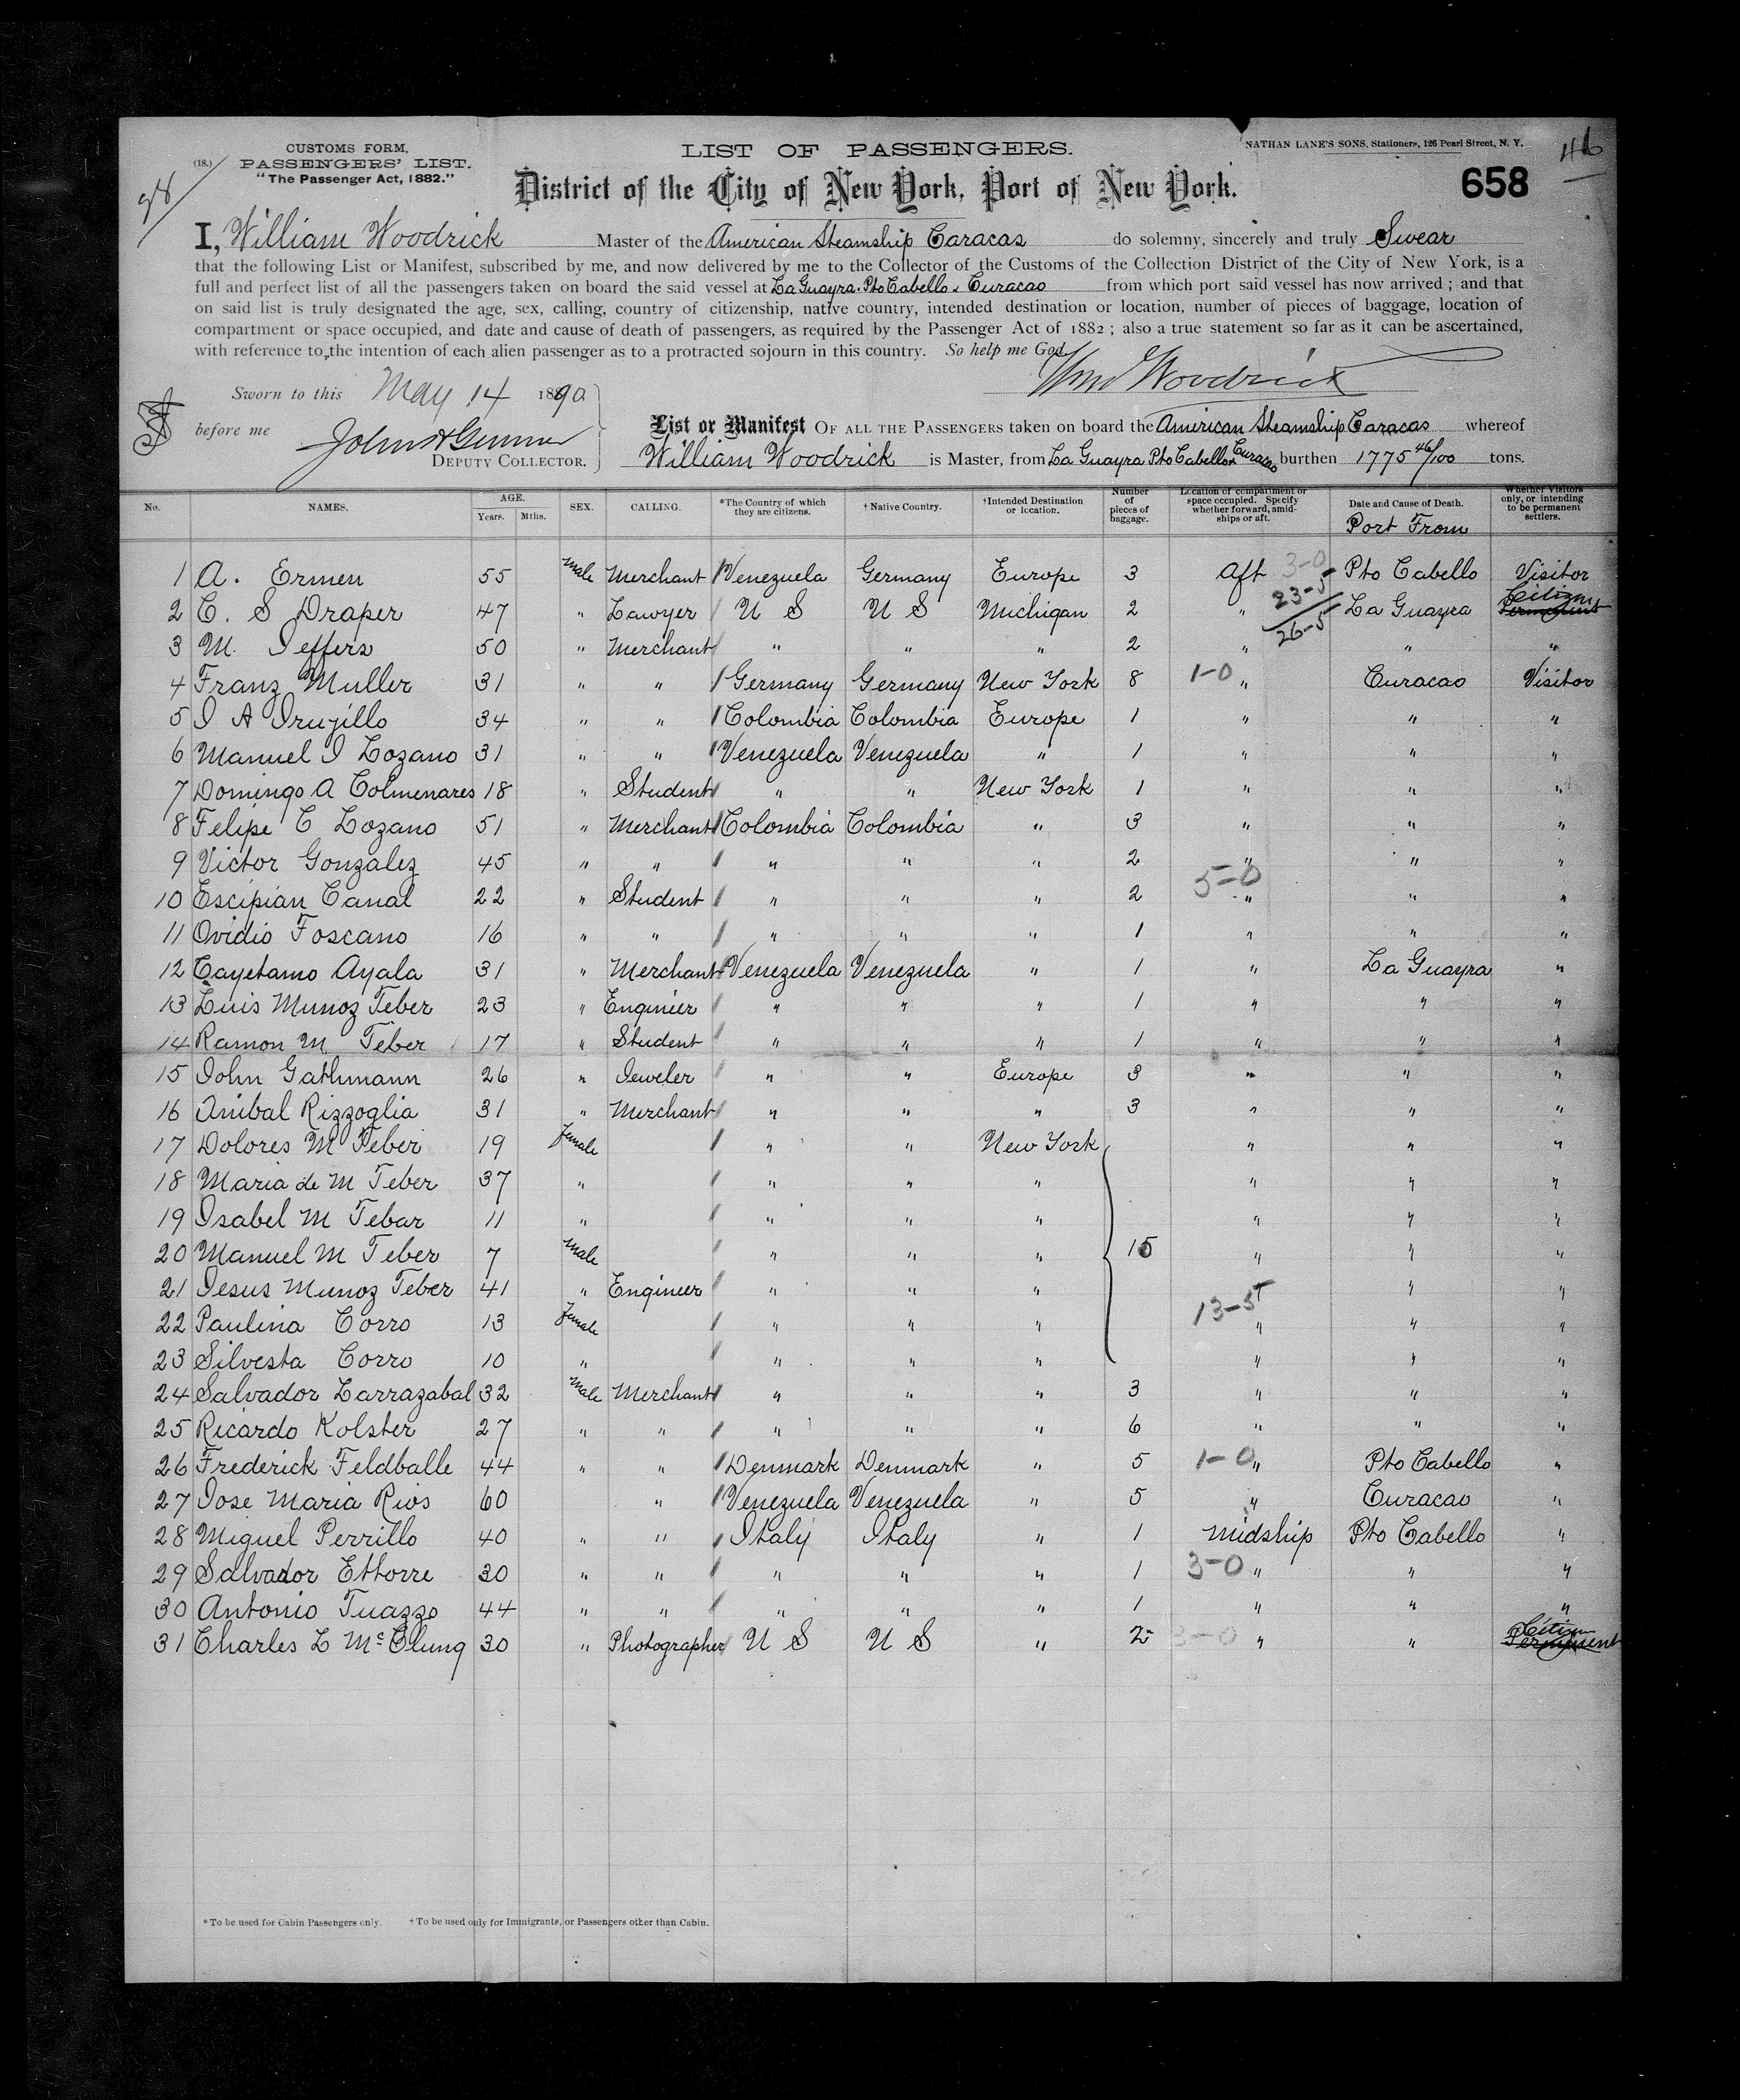 CUSTOMS FORM,
(18.) PASSENGERS' LIST.
"The Passenger Act, 1882."
LIST OF PASSENGERS.
NATHAN LANE'S SONS, Stationers, 126 Pearl Street, N. Y.
46
District of the City of New York, Port of New York.
658
I, William Woodrick Master of the American Steamship Caracas do solemny, sincerely and truly Swear
that the following List or Manifest, subscribed by me, and now delivered by me to the Collector of the Customs of the Collection District of the City of New York, is a
full and perfect list of all the passengers taken on board the said vessel at La Guayra. Pto Cabello & Curacao from which port said vessel has now arrived; and that
on said list is truly designated the age, sex, calling, country of citizenship, native country, intended destination or location, number of pieces of baggage, location of
compartment or space occupied, and date and cause of death of passengers, as required by the Passenger Act of 1882; also a true statement so far as it can be ascertained,
with reference to the intention of each alien passenger as to a protracted sojourn in this country. So help me God.
Wm Woodrick
Sworn to this May 14 1890
before me
DEPUTY COLLECTOR.
List or Manifest OF ALL THE PASSENGERS taken on board the American Steamship Caracas whereof
William Woodrick is Master, from La Guayra Pto Cabello & Curacao burthen 1775 46/100 tons.
No. NAMES. AGE. Years. Mths. SEX. CALLING. *The Country of which they are citizens. †Native Country. †Intended Destination or location. Number of pieces of baggage. Location of compartment or space occupied. Specify whether forward, amidships or aft. Date and Cause of Death. Port From Whether Visitors only, or intending to be permanent settlers.
1 A. Ermen 55 male Merchant Venezuela Germany Europe 3 Aft 3-0 Pto Cabello Visitor
2 C. S Draper 47 " Lawyer U S U S Michigan 2 " 23-5 La Guayra Permanent Citizen
3 M. Jeffers 50 " Merchant " " " 2 " 26-5 " "
4 Franz Muller 31 " " Germany Germany New York 8 1-0 " Curacao Visitor
5 J A Trujillo 34 " " Colombia Colombia Europe 1 " " "
6 Manuel J Lozano 31 " " Venezuela Venezuela " 1 " " "
7 Domingo A Colmenares 18 " Student " " New York 1 " " "
8 Felipe C Lozano 51 " Merchant Colombia Colombia " 3 " " "
9 Victor Gonzalez 45 " " " " " 2 " " "
10 Escipian Canal 22 " Student " " " 2 5-0 " " "
11 Ovidio Foscano 16 " " " " " 1 " " "
12 Cayetamo Ayala 31 " Merchant Venezuela Venezuela " 1 " La Guayra "
13 Luis Munoz Teber 23 " Enginier " " " 1 " " "
14 Ramon M Teber 17 " Student " " " 1 " " "
15 John Gathmann 26 " Jeweler " " Europe 3 " " "
16 Anibal Rizzoglia 31 " Merchant " " " 3 " " "
17 Dolores M Teber 19 female " " New York " " "
18 Maria de M Teber 37 " " " " " " "
19 Isabel M Tebar 11 " " " " " " "
20 Manuel M Teber 7 male " " " 15 " " "
21 Jesus Munoz Teber 41 " Engineer " " " " "
22 Paulina Corro 13 female " " " 13-5 " " "
23 Silvesta Corro 10 " " " " " " "
24 Salvador Larrazabal 32 male Merchant " " " 3 " " "
25 Ricardo Kolster 27 " " " " " 6 " " "
26 Frederick Feldballe 44 " " Denmark Denmark " 5 1-0 " Pto Cabello "
27 Jose Maria Rios 60 " Venezuela Venezuela " 5 " Curacao "
28 Miguel Perrillo 40 " " Italy Italy " 1 Midship Pto Cabello "
29 Salvador Ettorre 30 " " " " " 1 3-0 " " "
30 Antonio Tuazzo 44 " " " " " 1 " " "
31 Charles L McClung 30 " Photographer U S U S " 2 3-0 " " Permanent Citizen
*To be used for Cabin Passengers only. †To be used only for Immigrants, or Passengers other than Cabin.